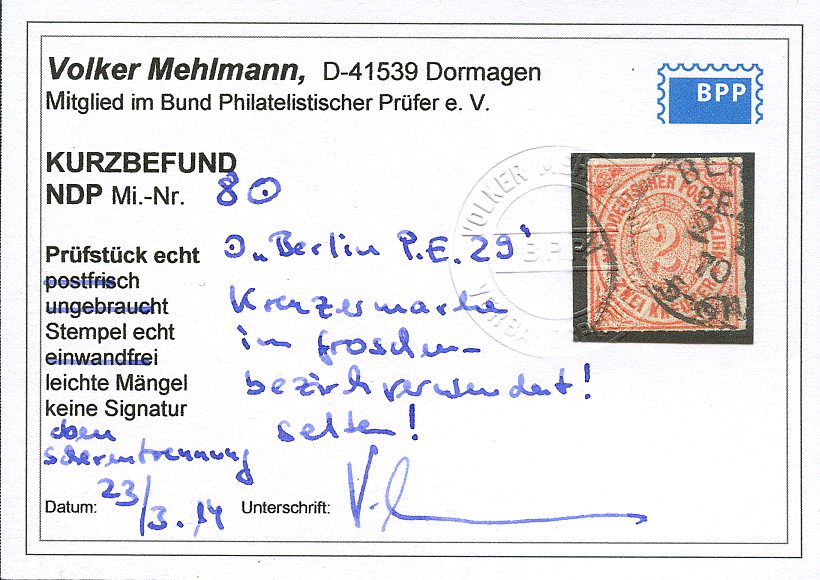 Volker Mehlmann, D-41539 Dormagen
Mitglied im Bund Philatelistischer Prüfer e. V.
BPP
KURZBEFUND
NDP Mi.-Nr. 80
Prüfstück echt
postfrisch
ungebraucht
Stempel echt
einwandfrei
leichte Mängel
keine Signatur
oben
Scherentrennung
"Berlin P.E. 29"
Kreuzermarke
im Groschen-
bezirk verwendet!
selten!
Datum: 23/3.14 Unterschrift:
VOLKER
B.P.P.
DEUTSCHER POSTBEZIRK
2
ZWEI KREUZER
BER
P.E.
70